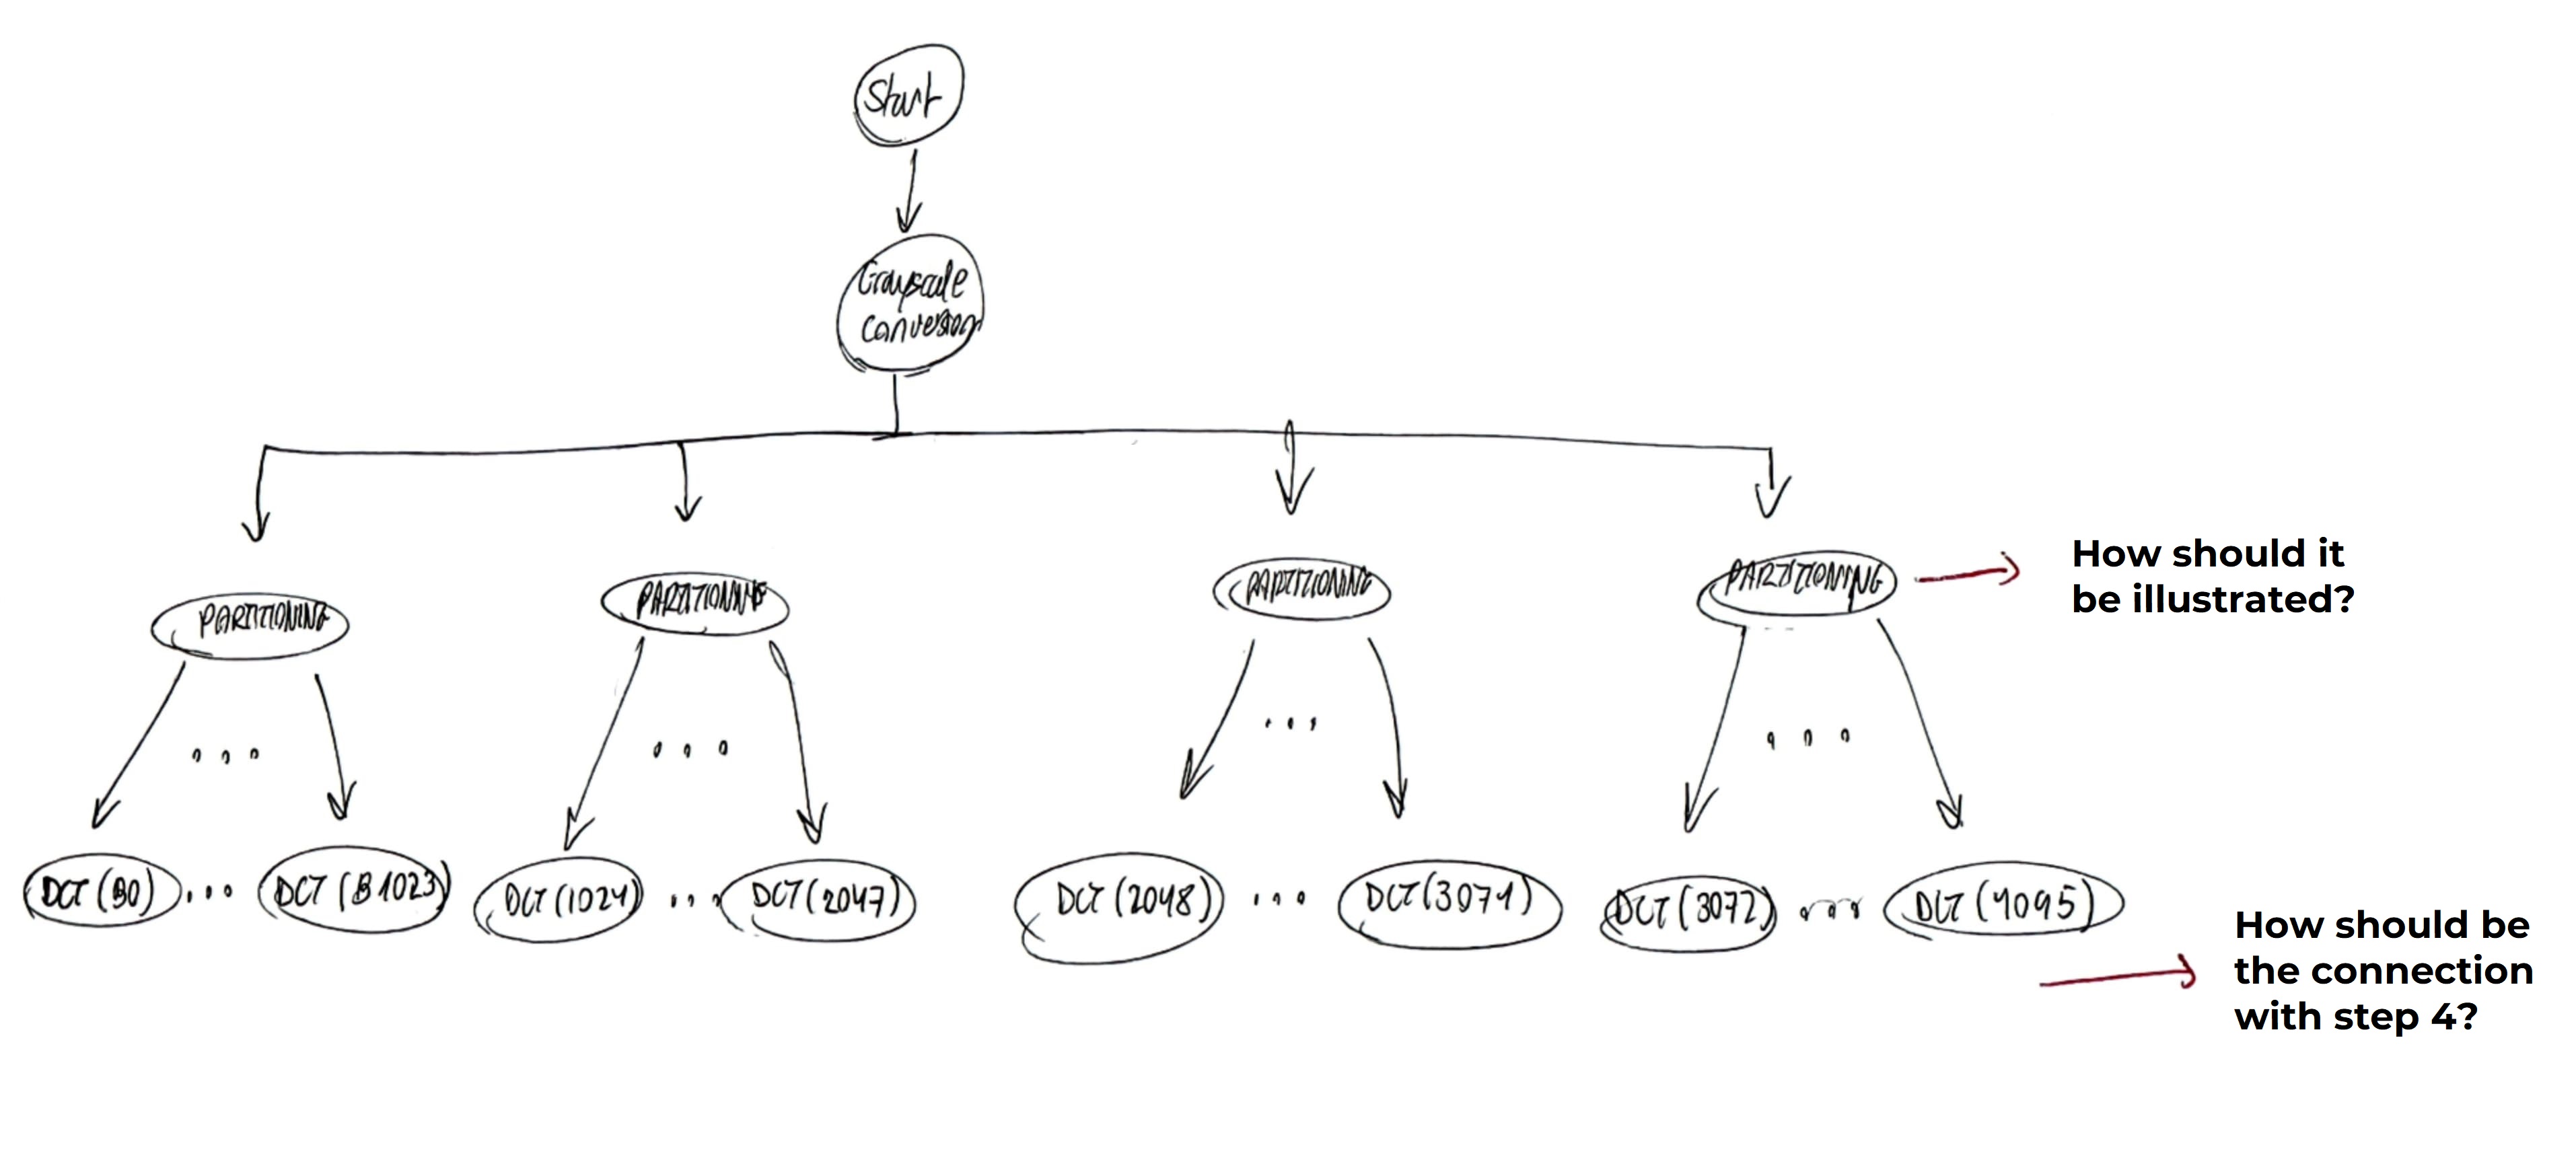 Start
Grayscale
Conversion
PARTITIONING
PARTITIONING
PARTITIONING
PARTITIONING
How should it
be illustrated?
...
...
...
...
DCT (B0)
...
DCT (B1023)
DCT (1024)
...
DCT (2047)
DCT (2048)
...
DCT (3071)
DCT (3072)
...
DCT (4095)
How should be
the connection
with step 4?